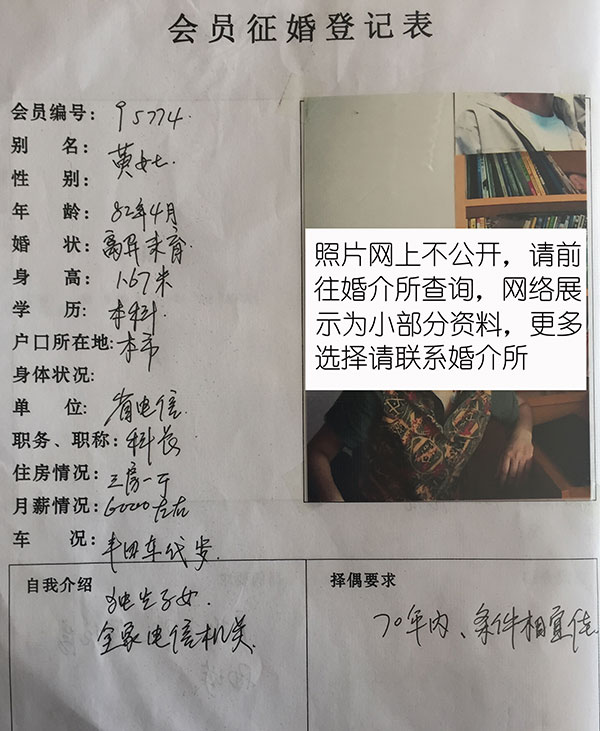 会员征婚登记表
会员编号: 95774.
别 名: 黄女士.
性 别:
年 龄: 82年4月
婚 状: 离异未育.
身 高: 1.67米
学 历: 本科.
户口所在地: 本市
身体状况:
单 位: 省电信.
职务、职称: 科长
住房情况: 三房一厅
月薪情况: 6000左右
车 况: 丰田车代步.
照片网上不公开，请前
往婚介所查询，网络展
示为小部分资料，更多
选择请联系婚介所
自我介绍
独生子女.
全家电信机关.
择偶要求
70年内、条件相宜佳.